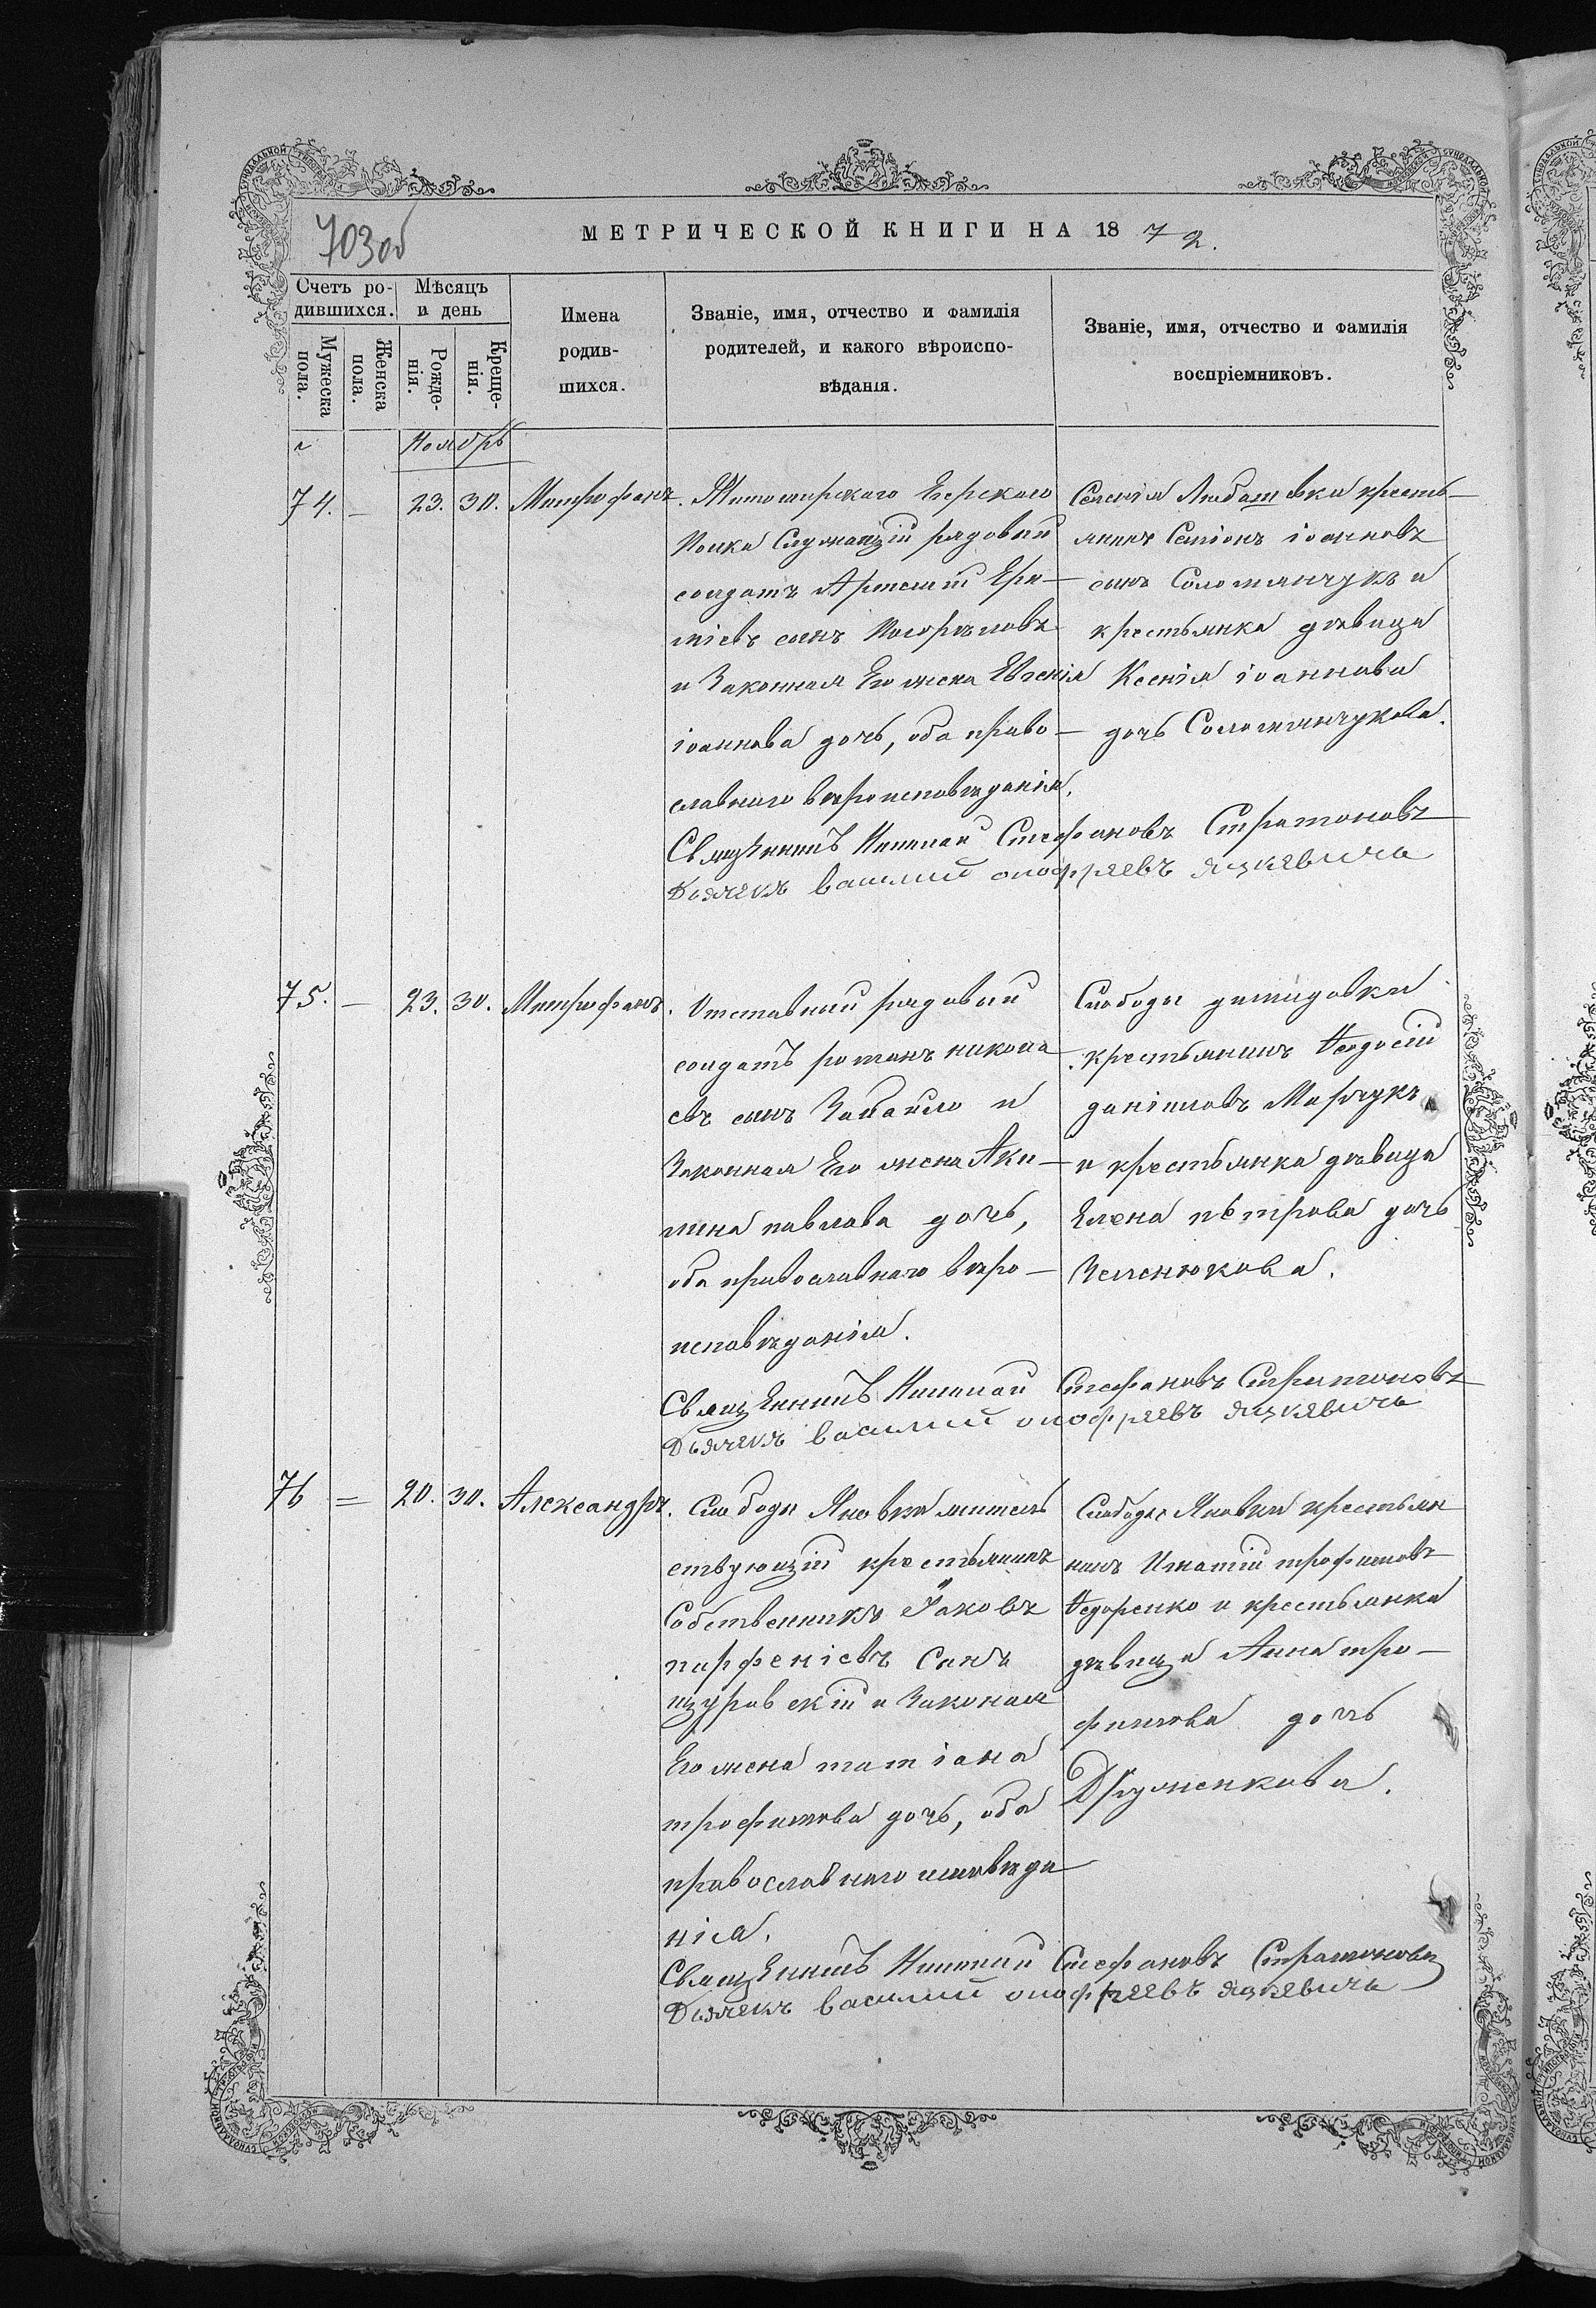 703 об
МЕТРИЧЕСКОЙ КНИГИ НА 1872.
Счетъ родившихся.
Мѣсяцъ и день
Имена родившихся.
Званіе, имя, отчество и фамилія родителей, и какого вѣроисповѣданія.
Званіе, имя, отчество и фамилія воспріемниковъ.
Мужеска пола.
Женска пола.
Рожденія.
Крещенія.
Ноябрь
74. — 23. 30. Митрофанъ.
Житомирскаго Егерскаго
Полка Служащій рядовый
солдатъ Арсеній
сынъ
и Законная Его жена Евгенія
іоаннова дочь, оба право-
славнаго вѣроисповѣданія.
Селенія Любашевки кресть-
янинъ Семіонъ іоанновъ
сынъ Соломянчукъ и
крестьянка дѣвица
Ксенія іоаннова
дочь Соломянчукова.
Священникъ Николай Стефановъ Стратоновъ
Дьячекъ василий онофреевъ яцкевичь
75. — 23. 30. Митрофанъ.
Отставный рядовый
солдатъ романъ никола
евъ сынъ и
Законная Его жена Аки-
лина павлова дочь,
оба православнаго вѣро-
исповѣданія.
Слободы демидовки
крестьянинъ Ѳеодосій
даніиловъ Марчукъ
и крестьянка дѣвица
Елена петрова дочь
Зеленюкова.
Священникъ Николай Стефановъ Стратоновъ
Дьячекъ василий онофреевъ яцкевичь
76 = 20. 30. Александръ.
Слободы Яновки житель
ствующій крестьянинъ
Собственникъ Іаковъ
парфеніевъ Сынъ
щуровскій и Законная
Его жена татіана
трофимова дочь, оба
православнаго исповѣда
нія.
Слободы Яновки крестьян
нинъ Игнатій трофимовъ
Ѳедоренко и крестьянка
дѣвица Анна тро-
фимова дочь
Священникъ Николай Стефановъ Стратоновъ
Дьячекъ василий онофреевъ яцкевичь